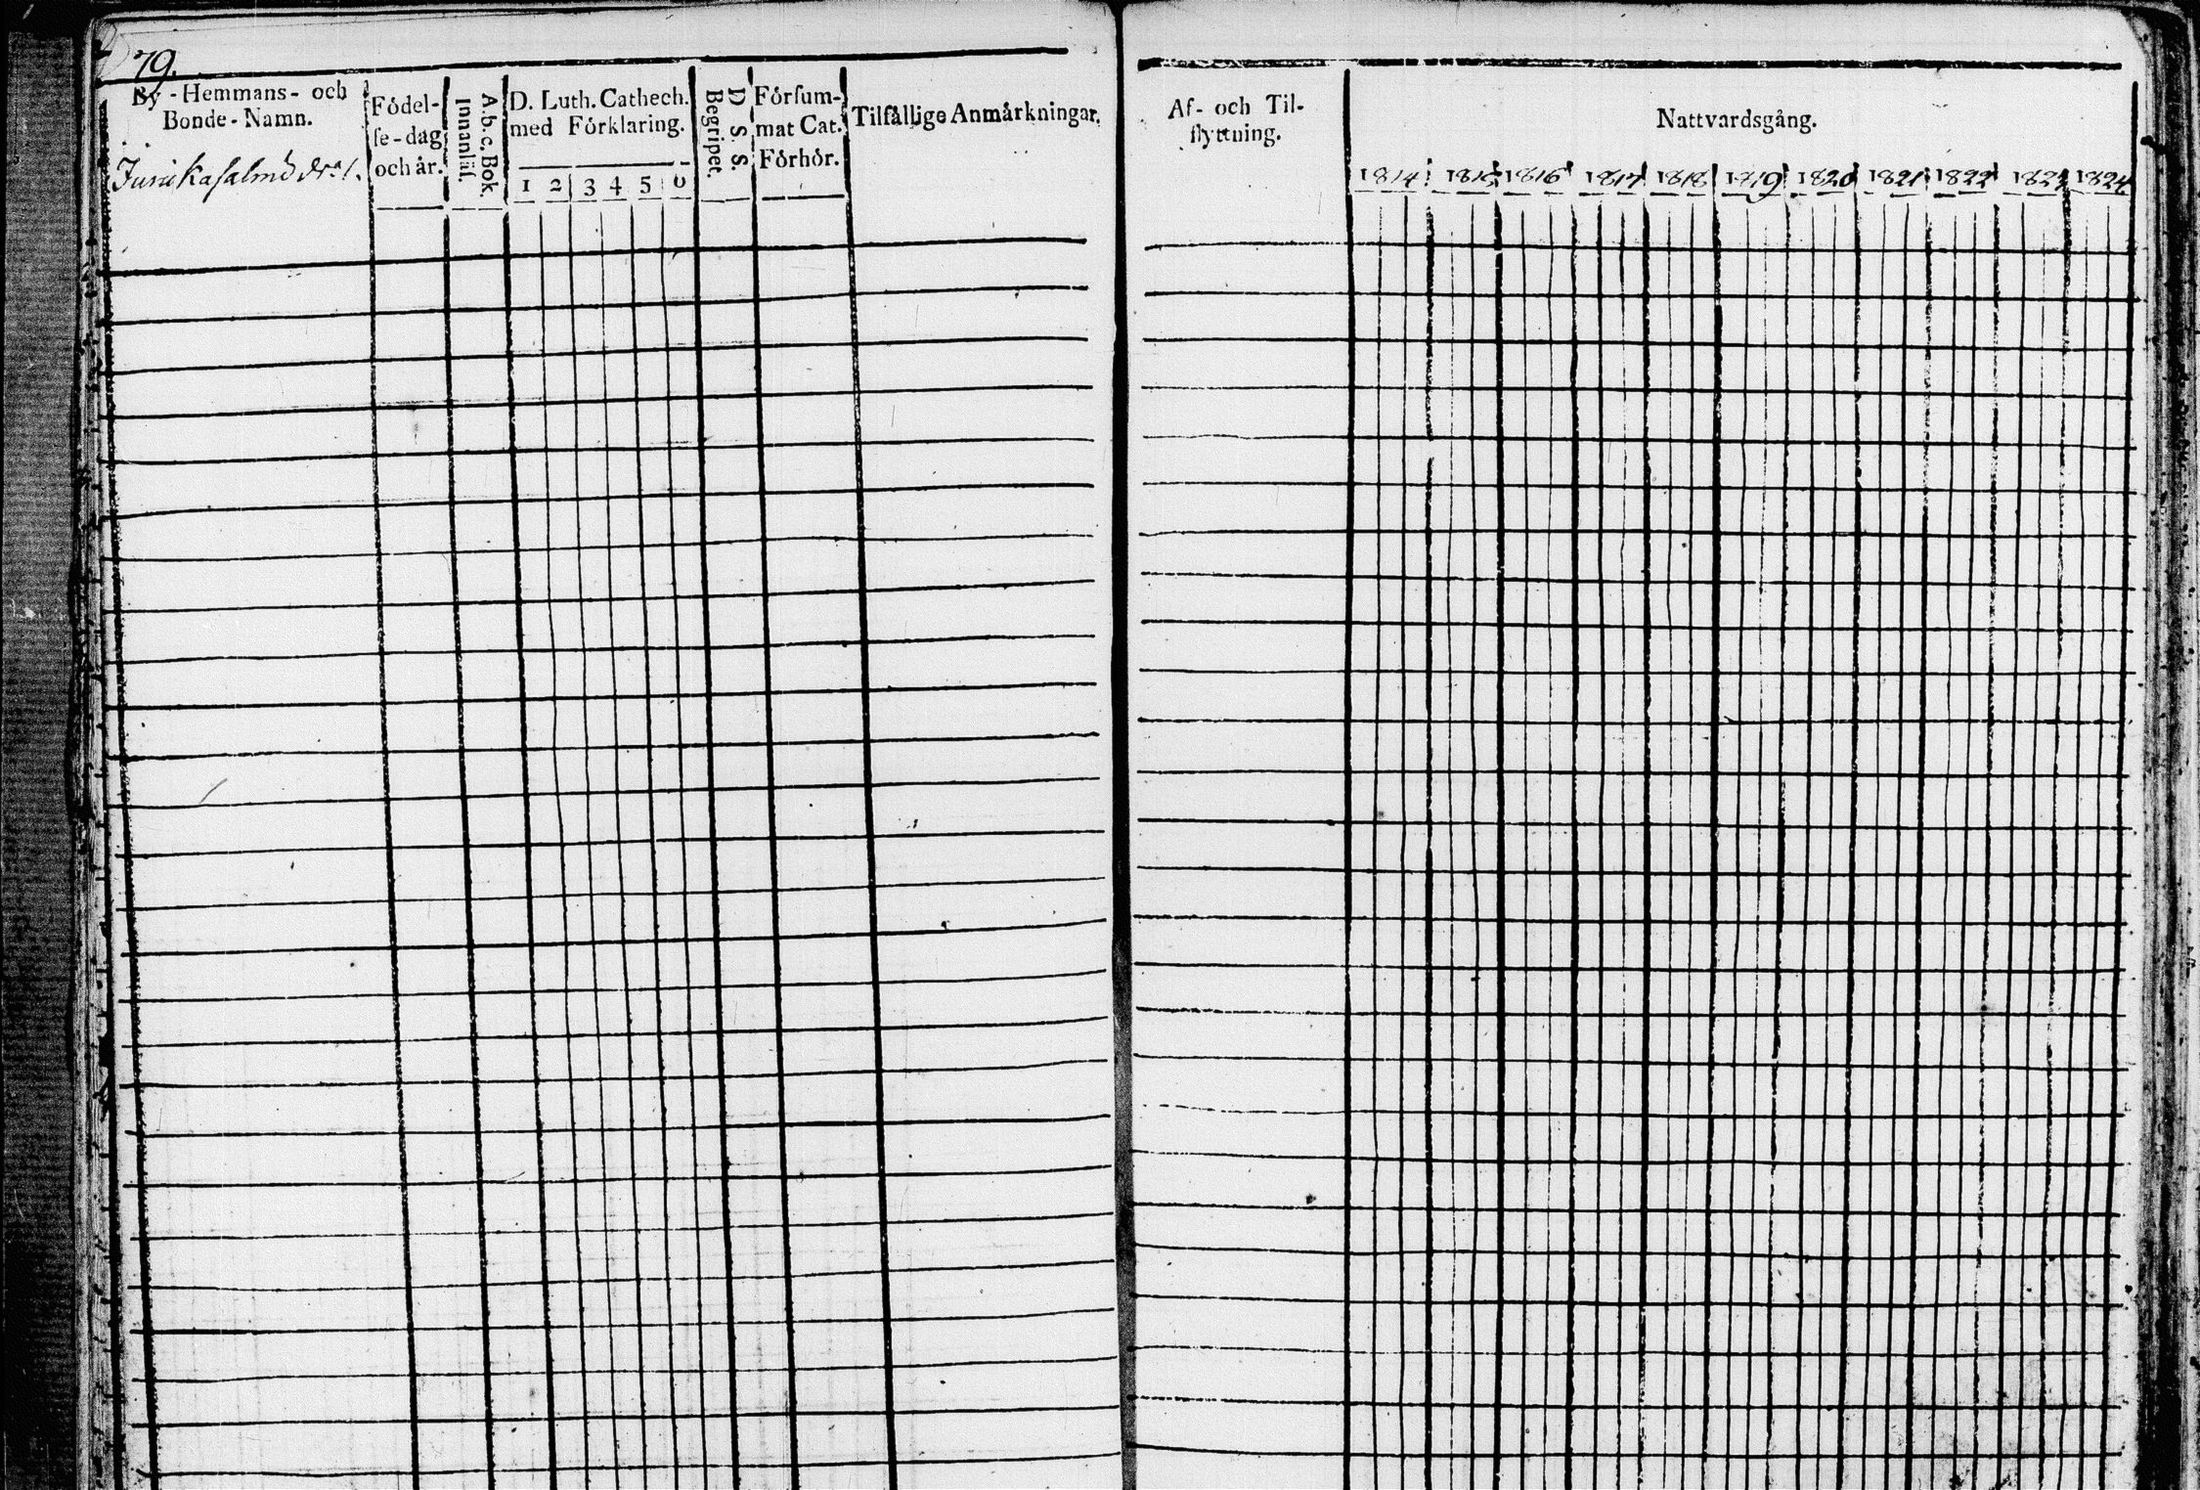 79.
By - Hemmans - och
Bonde - Namn.
Fódel-
ſe-dag
och år.
A. b. c. Bok.
Innanläſ.
D. Luth. Cathech.
med Fórklaring.
1 2 3 4 5 6
D. S. S.
Begripet.
Fórſum-
mat Cat.
Fórhór.
Tilfållige Anmårkningar.
Af- och Til-
flyttning.
Nattvardsgång.
1814 1815 1816 1817 1818 1819 1820 1821 1822 1823 1824